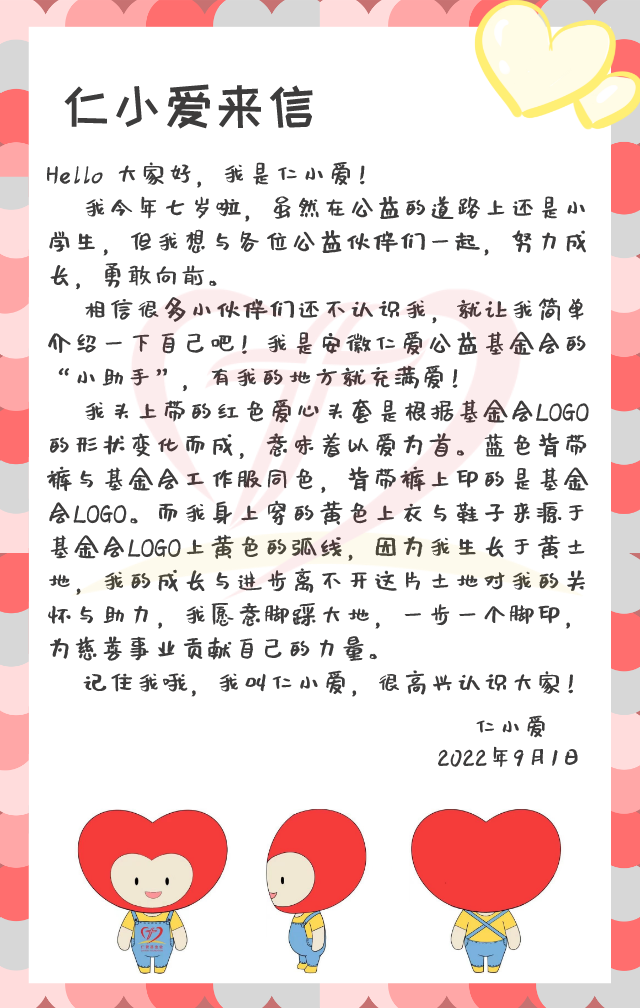 仁小爱来信
Hello 大家好，我是仁小爱！
我今年七岁啦，虽然在公益的道路上还是小
学生，但我想与各位公益伙伴们一起，努力成
长，勇敢向前。
相信很多小伙伴们还不认识我，就让我简单
介绍一下自己吧！我是安徽仁爱公益基金会的
“小助手”，有我的地方就充满爱！
我头上带的红色爱心头套是根据基金会LOGO
的形状变化而成，意味着以爱为首。蓝色背带
裤与基金会工作服同色，背带裤上印的是基金
会LOGO。而我身上穿的黄色上衣与鞋子来源于
基金会LOGO上黄色的弧线，因为我生长于黄土
地，我的成长与进步离不开这片土地对我的关
怀与助力，我愿意脚踩大地，一步一个脚印，
为慈善事业贡献自己的力量。
记住我哦，我叫仁小爱，很高兴认识大家！
仁小爱
2022年9月1日